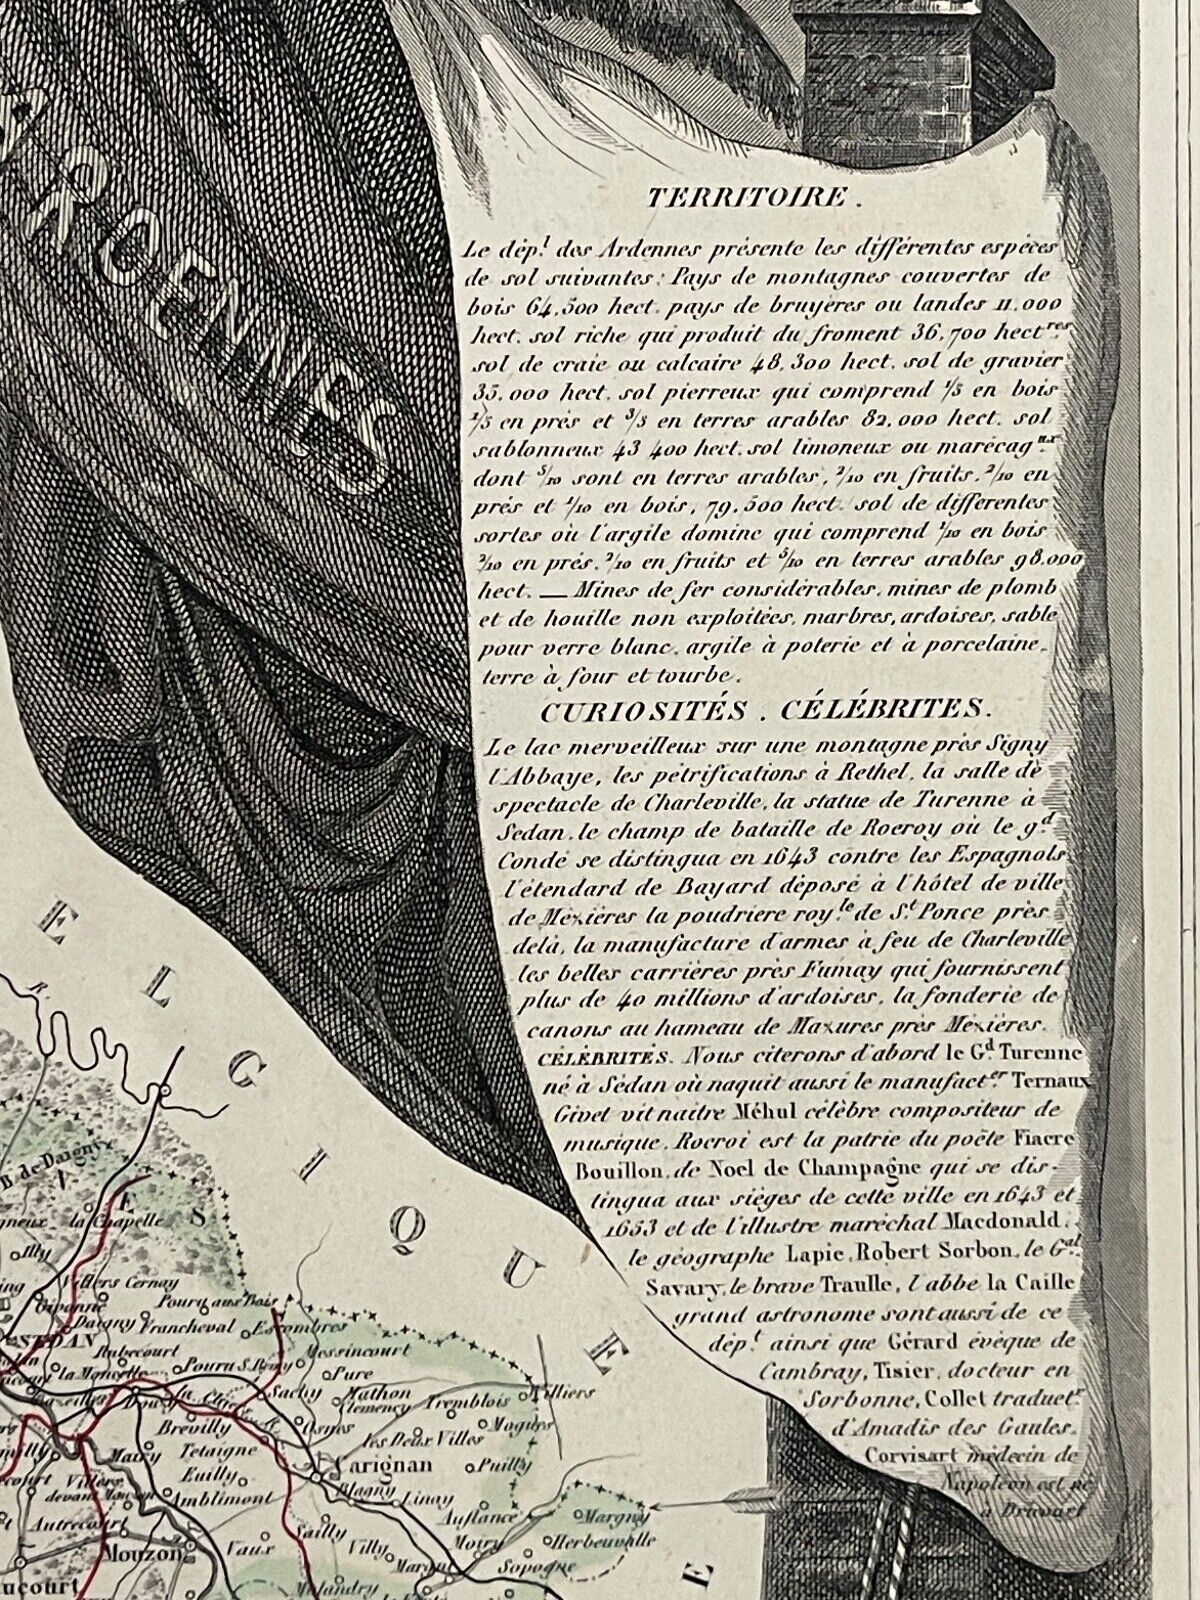 ARDENNES
TERRITOIRE.
Le dép.t des Ardennes présente les différentes espèces
de sol suivantes: Pays de montagnes couvertes de
bois 64,500 hect. pays de bruyères ou landes 11,000
hect. sol riche qui produit du froment 36,700 hect.res
sol de craie ou calcaire 48,300 hect. sol de gravier
35,000 hect. sol pierreux qui comprend 1/5 en bois
1/5 en prés et 3/5 en terres arables 82,000 hect. sol
sablonneux 43 400 hect. sol limoneux ou marécag.ux
dont 5/10 sont en terres arables, 2/10 en fruits, 2/10 en
prés et 1/10 en bois, 79,500 hect. sol de différentes
sortes où l'argile domine qui comprend 1/10 en bois
2/10 en prés, 2/10 en fruits et 5/10 en terres arables 98,000
hect. — Mines de fer considérables, mines de plomb
et de houille non exploitées, marbres, ardoises, sable
pour verre blanc, argile à poterie et à porcelaine,
terre à four et tourbe.
CURIOSITÉS. CÉLÉBRITES.
Le lac merveilleux sur une montagne près Signy
l'Abbaye, les pétrifications à Rethel, la salle de
spectacle de Charleville, la statue de Turenne à
Sedan, le champ de bataille de Rocroy où le g.d
Condé se distingua en 1643 contre les Espagnols
l'étendard de Bayard déposé à l'hôtel de ville
de Mézières la poudriere roy.le de S.t Ponce près
delà, la manufacture d'armes à feu de Charleville
les belles carrières près Fumay qui fournissent
plus de 40 millions d'ardoises, la fonderie de
canons au hameau de Mazures près Mézières.
CÉLÉBRITÉS. Nous citerons d'abord le G.d Turenne
né à Sédan où naquit aussi le manufact.er Ternaux
Givet vit naitre Méhul célèbre compositeur de
musique, Rocroi est la patrie du poête Fiacre
Bouillon, de Noel de Champagne qui se dis-
tingua aux sièges de cette ville en 1643 et
1653 et de l'illustre maréchal Macdonald,
le géographe Lapie, Robert Sorbon, le G.al
Savary, le brave Traulle, l'abbe la Caille
grand astronome sont aussi de ce
dép.t ainsi que Gérard évèque de
Cambray, Tisier, docteur en
Sorbonne, Collet traduct.r
d'Amadis des Gaules.
Corvisart médecin de
Napoléon est né
à Dricourt
ELGIQUE
R.
B. de Daigny
E S
la Chapelle
Illy
Villers Cernay
Givonne
Pouru aux Bois
Daigny
Francheval
Escombres
SEDAN
Rubecourt
Messincourt
la Moncelle
Pouru S. Remy
Pure
Sachy
Mathon
Clemency
Tremblois
Williers
Douzy
la Chiers R.
Brévilly
Osnes
Mogues
Tetaigne
les Deux Villes
Mairy
Euilly
Carignan
Puilly
Villers
devant Mouzon
Amblimont
Blagny
Linay
Auflance
Margny
Autrecourt
Sailly
Mouzon
Vaux
Villy
Margut
Moiry
Herbeuvalle
Sapogne
ucourt
Malandry
E